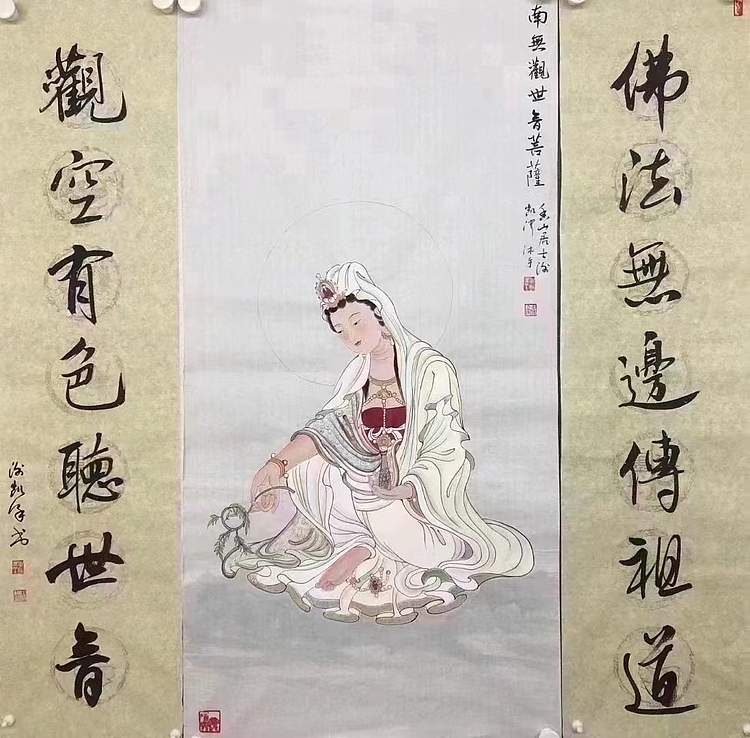 佛法無邊傳祖道
南無觀世音菩薩
觀空有色聽世音